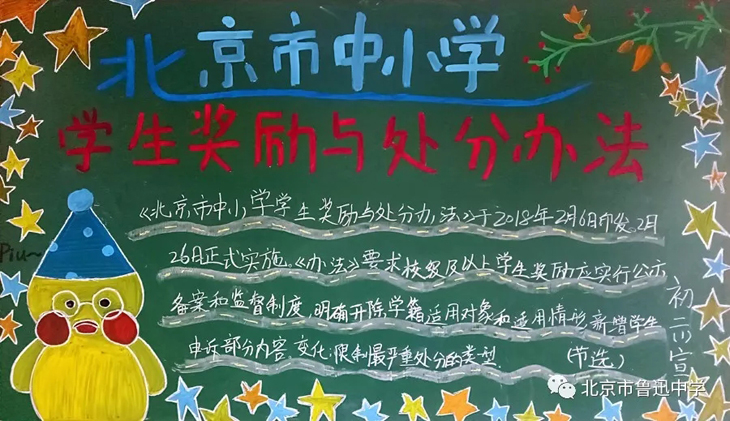 北京市中小学
学生奖励与处分办法
《北京市中小学学生奖励与处分办法》于2018年2月6日印发。2月
26日正式实施。《办法》要求校级及以上学生奖励应实行公示
备案和监督制度,明确开除学籍适用对象和适用情况,新增学生
申诉部分内容变化;限制最严重处分的类型
(节选)
Piu~
初二
宣
北京市鲁迅中学